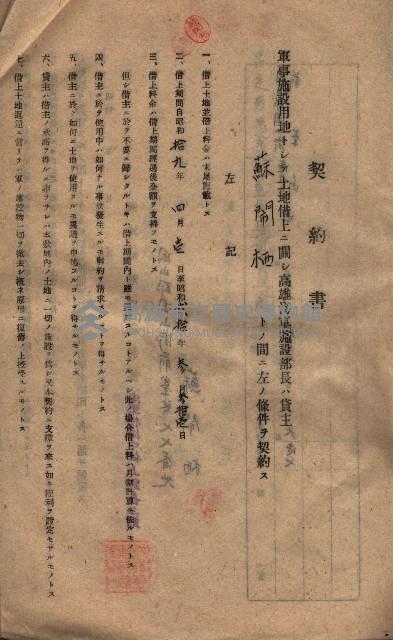 契約書
軍事施設用地トシテ土地借上ニ關シ高雄海軍施設部長ハ貸主
蘇閙栖 トノ間ニ左ノ條件ヲ契約ス
左記
一、借上土地並借上料金ハ末尾記載トス
二、借上期間自昭和拾九年四月壱日至昭和 年参月参拾壱日
三、借上料金ハ借上期間經過後全額ヲ支拂フモノトス
但シ借主ニ於テ不要ニ歸シタルトキハ借上期間内ト雖モ コトアルベシ此ノ場合借上料ハ月割計算ニ依ルモノトス
四、借主ニ於テ使用中ハ如何ナル事故發生スルモ解約ヲ請求 ヲ得ザルモノトス
五、借主ニ於テ如何ニ土地ヲ使用スルモ異議ヲ申 ヲ得ザルモノトス
六、貸主ハ借主ノ承諾ヲ得ルニ非ラザレバ本敷地内ノ土地ニ一切ノ施設ヲ爲シ又本契約ニ支障ヲ來ス如キ權利ヲ設定セザルモノトス
七、借上土地返還ニ當リテハ軍ノ建設物一切ヲ撤去シ概ネ原形ニ復舊ノ上授受スルモノトス